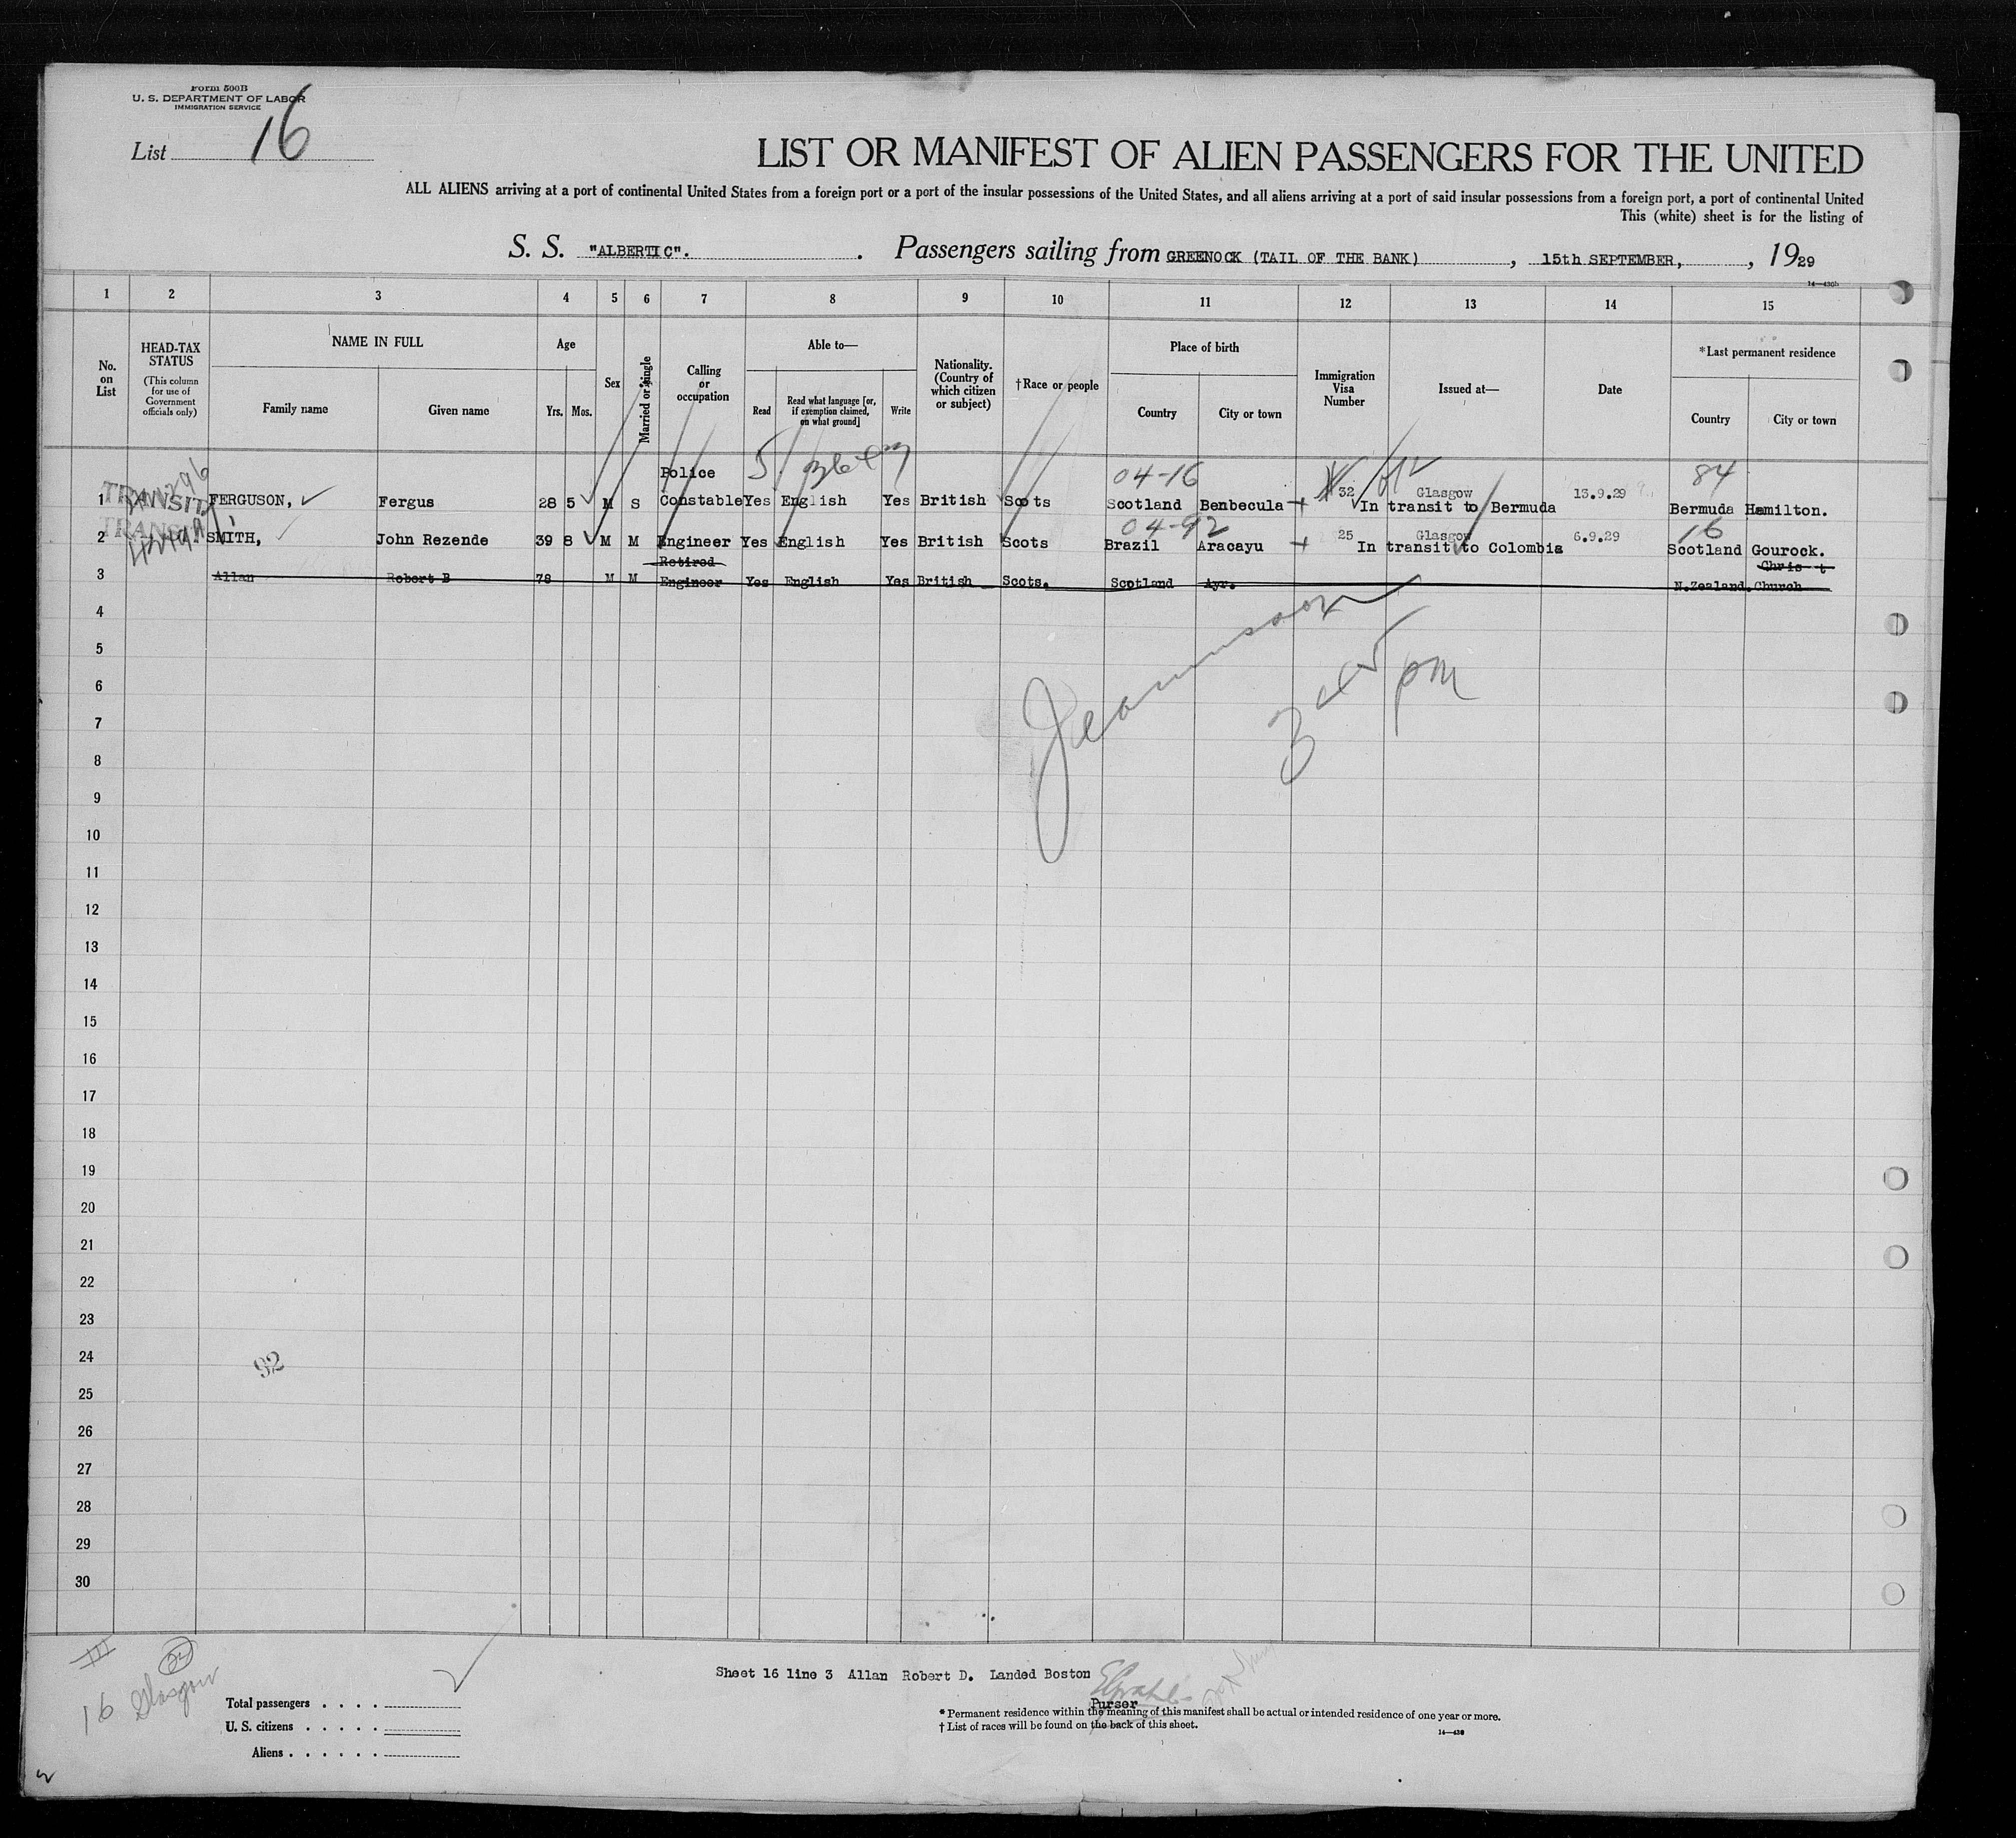 Form 500B
U. S. DEPARTMENT OF LABOR
IMMIGRATION SERVICE
List 16
LIST OR MANIFEST OF ALIEN PASSENGERS FOR THE UNITED
ALL ALIENS arriving at a port of continental United States from a foreign port or a port of the insular possessions of the United States, and all aliens arriving at a port of said insular possessions from a foreign port, a port of continental United
This (white) sheet is for the listing of
S. S. "ALBERTIC". Passengers sailing from GREENOCK (TAIL OF THE BANK), 15th SEPTEMBER, 1929
14—430b
1 2 3 4 5 6 7 8 9 10 11 12 13 14 15
No. on List
HEAD-TAX STATUS
(This column for use of Government officials only)
NAME IN FULL
Family name Given name
Age
Yrs. Mos.
Sex
Married or single
Calling or occupation
Able to—
Read Read what language [or, if exemption claimed, on what ground] Write
Nationality. (Country of which citizen or subject)
†Race or people
Place of birth
Country City or town
Immigration Visa Number
Issued at—
Date
*Last permanent residence
Country City or town
04-16 84
1 TRANSIT FERGUSON, Fergus 28 5 M S Police Constable Yes English Yes British Scots Scotland Benbecula 32 Glasgow In transit to Bermuda 13.9.29 Bermuda Hamilton.
04-92 16
2 TRANSIT SMITH, John Rezende 39 8 M M Engineer Yes English Yes British Scots Brazil Aracayu 25 Glasgow In transit to Colombia 6.9.29 Scotland Gourock.
3 Allan Robert B 78 M M Retired Engineer Yes English Yes British Scots. Scotland Ayr. N.Zealand. Christ Church
4
5
6
3 45 pm
7
8
9
10
11
12
13
14
15
16
17
18
19
20
21
22
23
24
92
25
26
27
28
29
30
III
16 Glasgow
Sheet 16 line 3 Allan Robert D. Landed Boston
Purser
Total passengers . . . .
U. S. citizens . . . . .
Aliens . . . . . .
* Permanent residence within the meaning of this manifest shall be actual or intended residence of one year or more.
† List of races will be found on the back of this sheet.
14—430